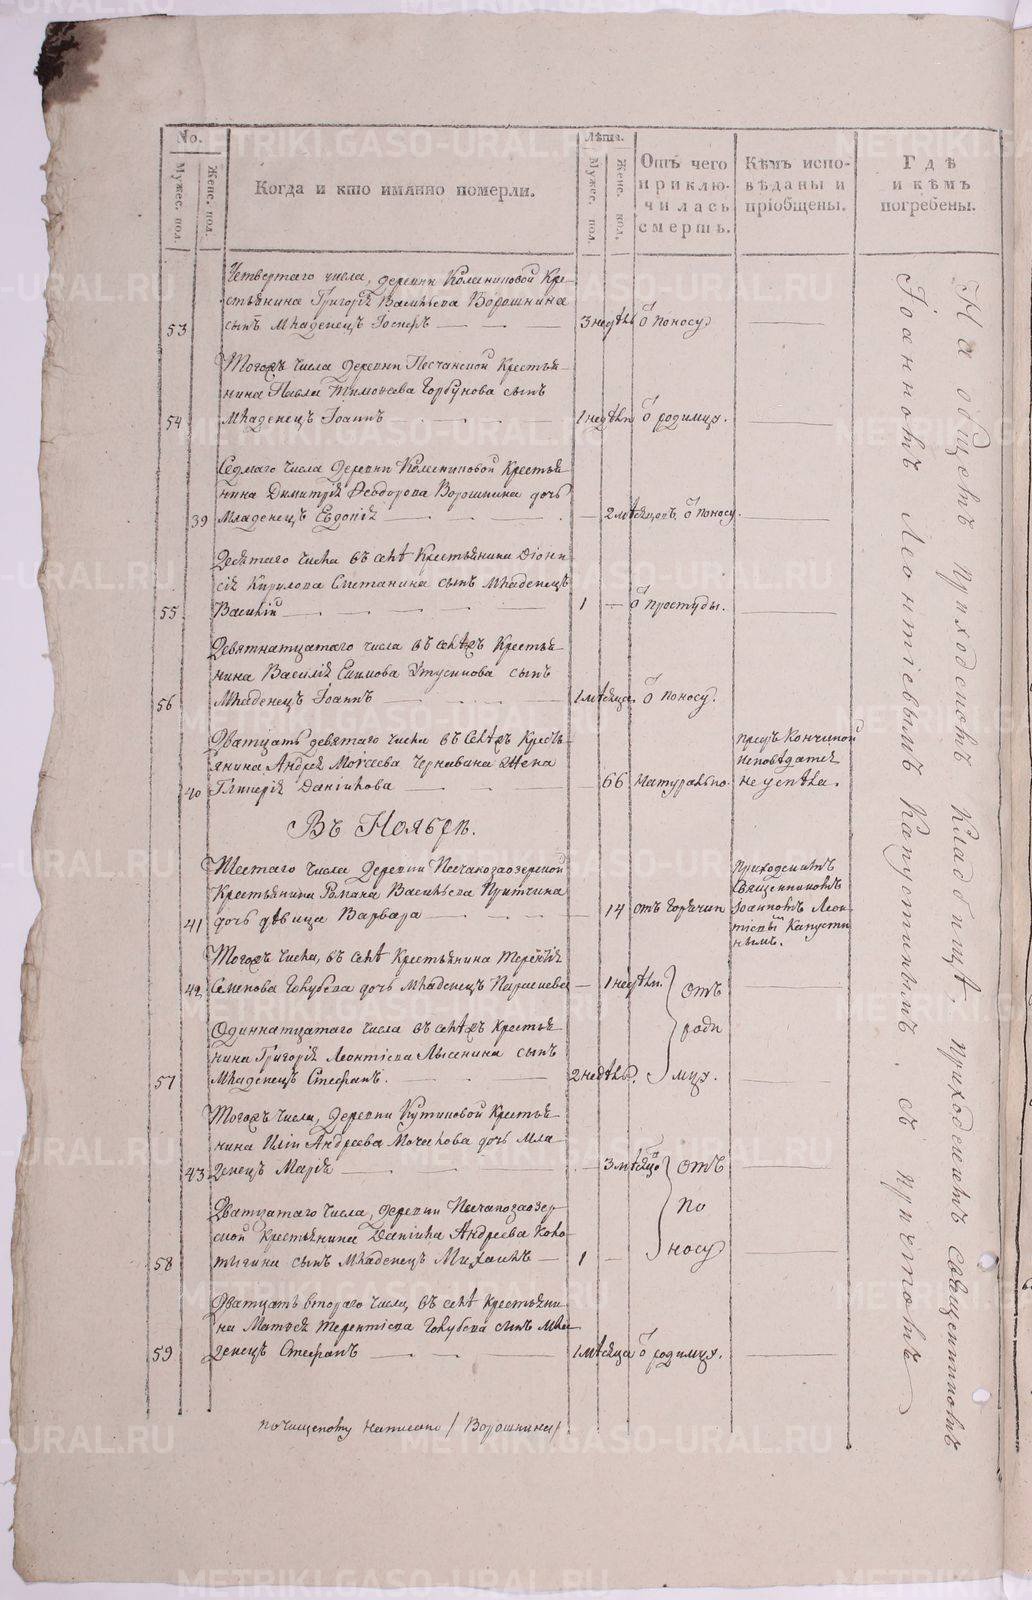 No.
Мужес. пол.
Женс. пол.
Когда и кто имянно померли.
Лѣта.
Мужес. пол.
Женс. пол.
Отъ чего
приклю-
чилась
смерть.
Кѣмъ испо-
вѣданы и
пріобщены.
Гдѣ
и кѣмъ
погребены.
Четвертаго числа, деревни Колениновой Кре-
стьянина Григорія Васильева Ворошнина
53 сынъ младенецъ Іосифъ — 3 недѣль ѿ поносу
Тогожъ числа деревни Песчанской Крестья-
нина Павла Тимофеева Горбунова сынъ
54 Младенецъ Іоаннъ 1 недѣли ѿ родимца.
Седмаго числа деревни Колениновой Крестья-
нина Димитрія Ѳеодорова Ворошнина дочь
39 Младенецъ Евдокія — 2 мѣсяцовъ ѿ поносу.
Десятаго числа въ селѣ Крестьянина Діони-
сія Кирилова Сметанина сынъ Младенецъ
55 Василій — 1 — ѿ простуды.
Девятнатцатаго числа въ селѣжъ Крестья-
нина Василія Ефимова сынъ
56 Младенецъ Іоаннъ — 1 мѣсяца. ѿ поносу.
Дватцать девятаго числа въ селѣжъ Кресть-
янина Андрея Моѵсеева Чернавина жена
40 Гликерія Даніилова — 66 натурально.
предъ Кончиной
исповѣдатся
не успѣла.
Въ Ноябрѣ.
Шестаго числа деревни Песчанозаозерской
Крестьянина Романа Васильева Притчина
41 дочь дѣвица Варвара — 14 отъ горячки
Приходскимъ
Священникомъ
Іоанномъ Леон-
тіевымъ Капусти-
нымъ.
Тогожъ числа, въ селѣ Крестьянина Терентія
42 Семенова Голубева дочь младенецъ Параскева — 1 недѣли.
Одиннатцатаго числа въ селѣжъ Крестья-
нина Григорія Леонтіева Лысенина сынъ
57 Младенецъ Стефанъ. — 2 недѣль.
отъ
роди
мца.
Тогожъ числа, деревни Кутиковой Крестья-
нина Иліи Андреева Мочалова дочь мла-
43 денецъ Марія — 3 мѣсяцовъ
Дватцатаго числа, деревни Песчанозаозер-
ской Крестьянина Даніила Андреева Коко-
58 тыгина сынъ Младенецъ Михаилъ — 1 —
отъ
по
носу
Дватцать втораго числа, въ селѣ Крестьяни-
на Матѳея Терентіева Голубева сынъ мла-
59 денецъ Стефанъ — 1 мѣсяца ѿ родимца.
На общемъ приходскомъ кладбищѣ, приходскимъ священникомъ
Іоанномъ Леонтіевымъ Капустинымъ съ причтомъ
по чищеному написано /Ворошнина/
METRIKI.GASO-URAL.RU